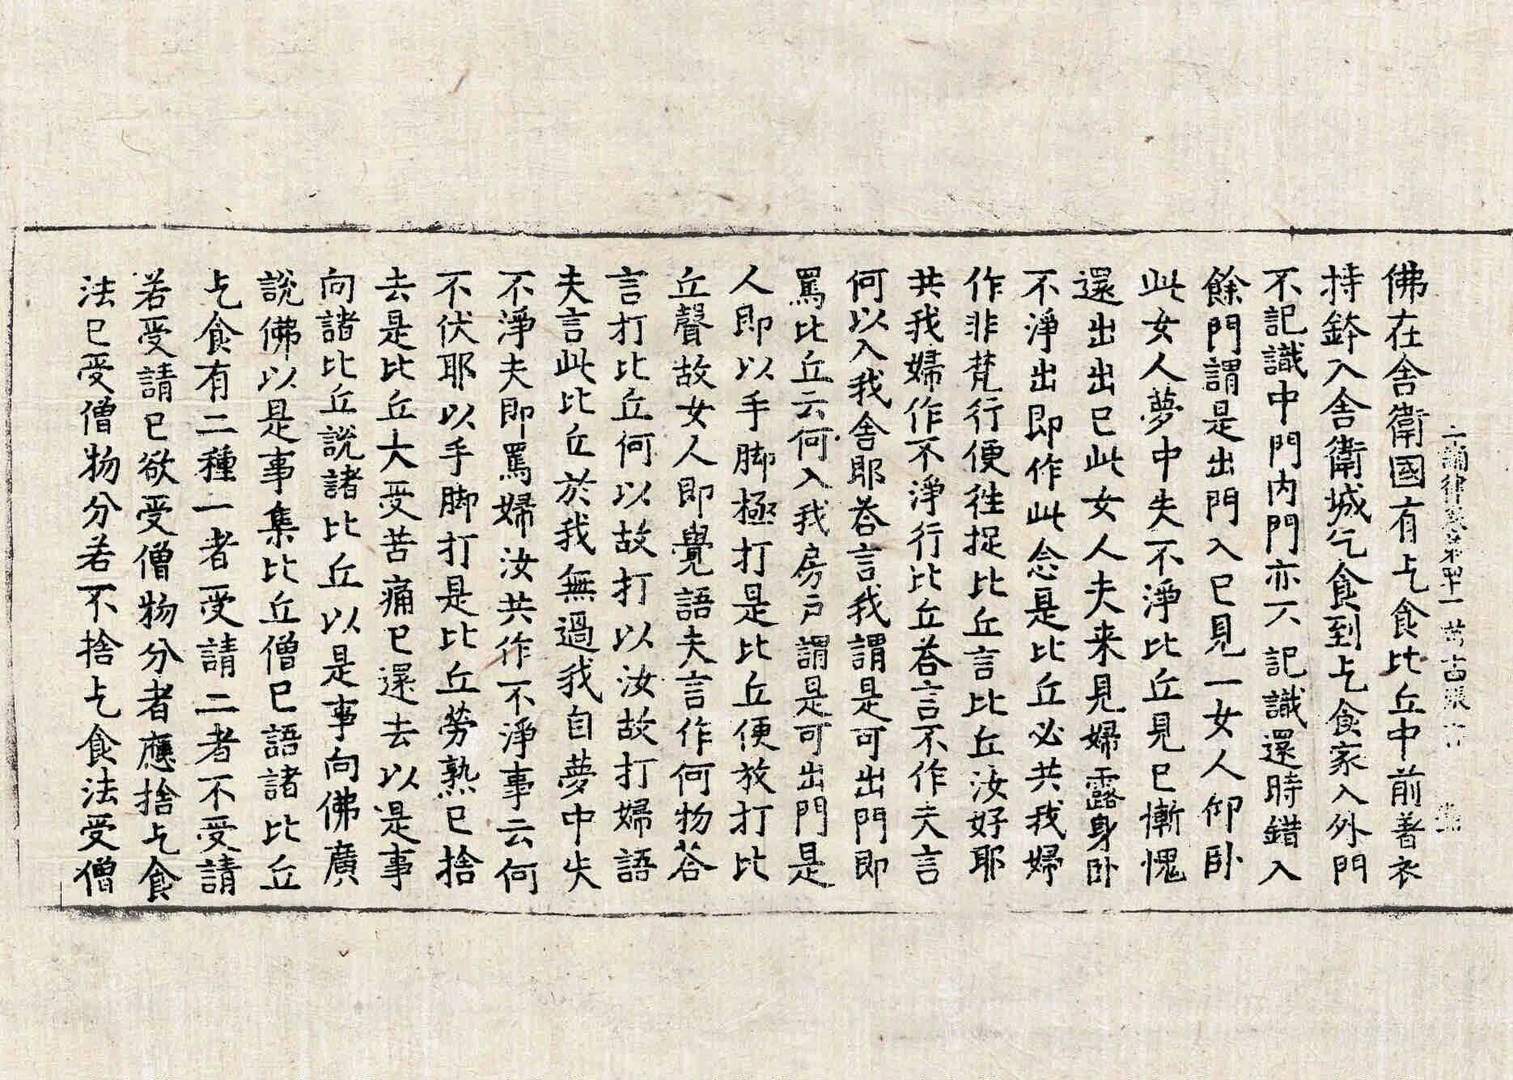 佛在舎衛國有乞食比丘中前著衣
持鉢入舎衛城乞食到乞食家入外門
不記識中門内門亦不記識還時錯入
餘門謂是出門入已見一女人仰卧
此女人夢中失不淨比丘見已慚愧
還出出已此女人夫来見婦露身卧
不淨出即作此念是比丘必共我婦
作非梵行便徃捉比丘言比丘汝好耶
共我婦作不淨行比丘荅言不作夫言
何以入我舎耶荅言我謂是可出門即
罵比丘云何入我房戸謂是可出門是
人即以手脚極打是比丘便放打比
丘聲故女人即覺語夫言作何物荅
言打比丘何以故打以汝故打婦語
夫言此比丘於我無過我自夢中失
不淨夫即罵婦汝共作不淨事云何
不伏耶以手脚打是比丘勞熟已捨
去是比丘大受苦痛已還去以是事
向諸比丘説諸比丘以是事向佛廣
説佛以是事集比丘僧已語諸比丘
乞食有二種一者受請二者不受請
若受請已欲受僧物分者應捨乞食
法已受僧物分若不捨乞食法受僧